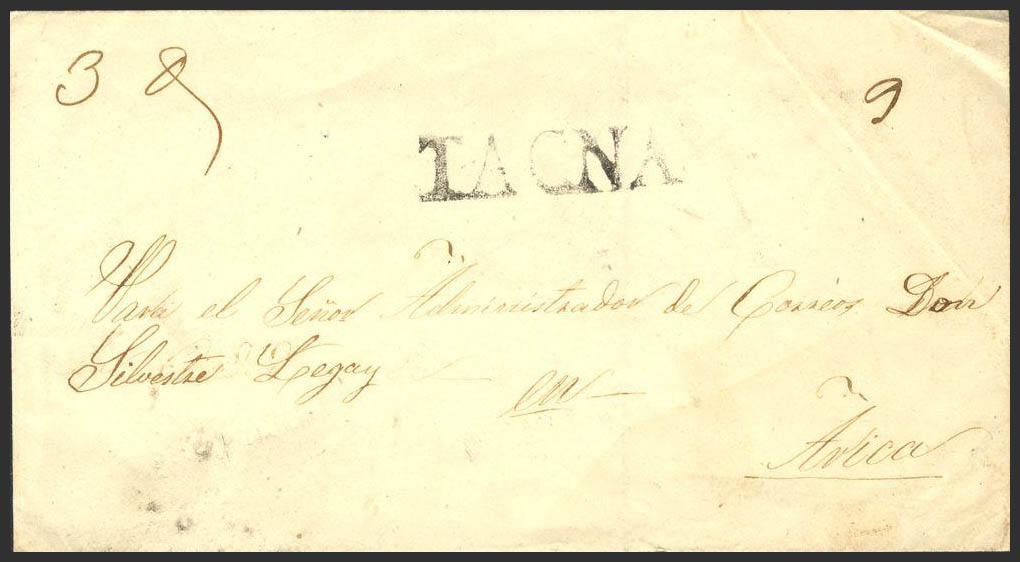 3 8 9
TACNA
Para el Señor Administrador de Correos Don
Silvestre Legay
en
Arica